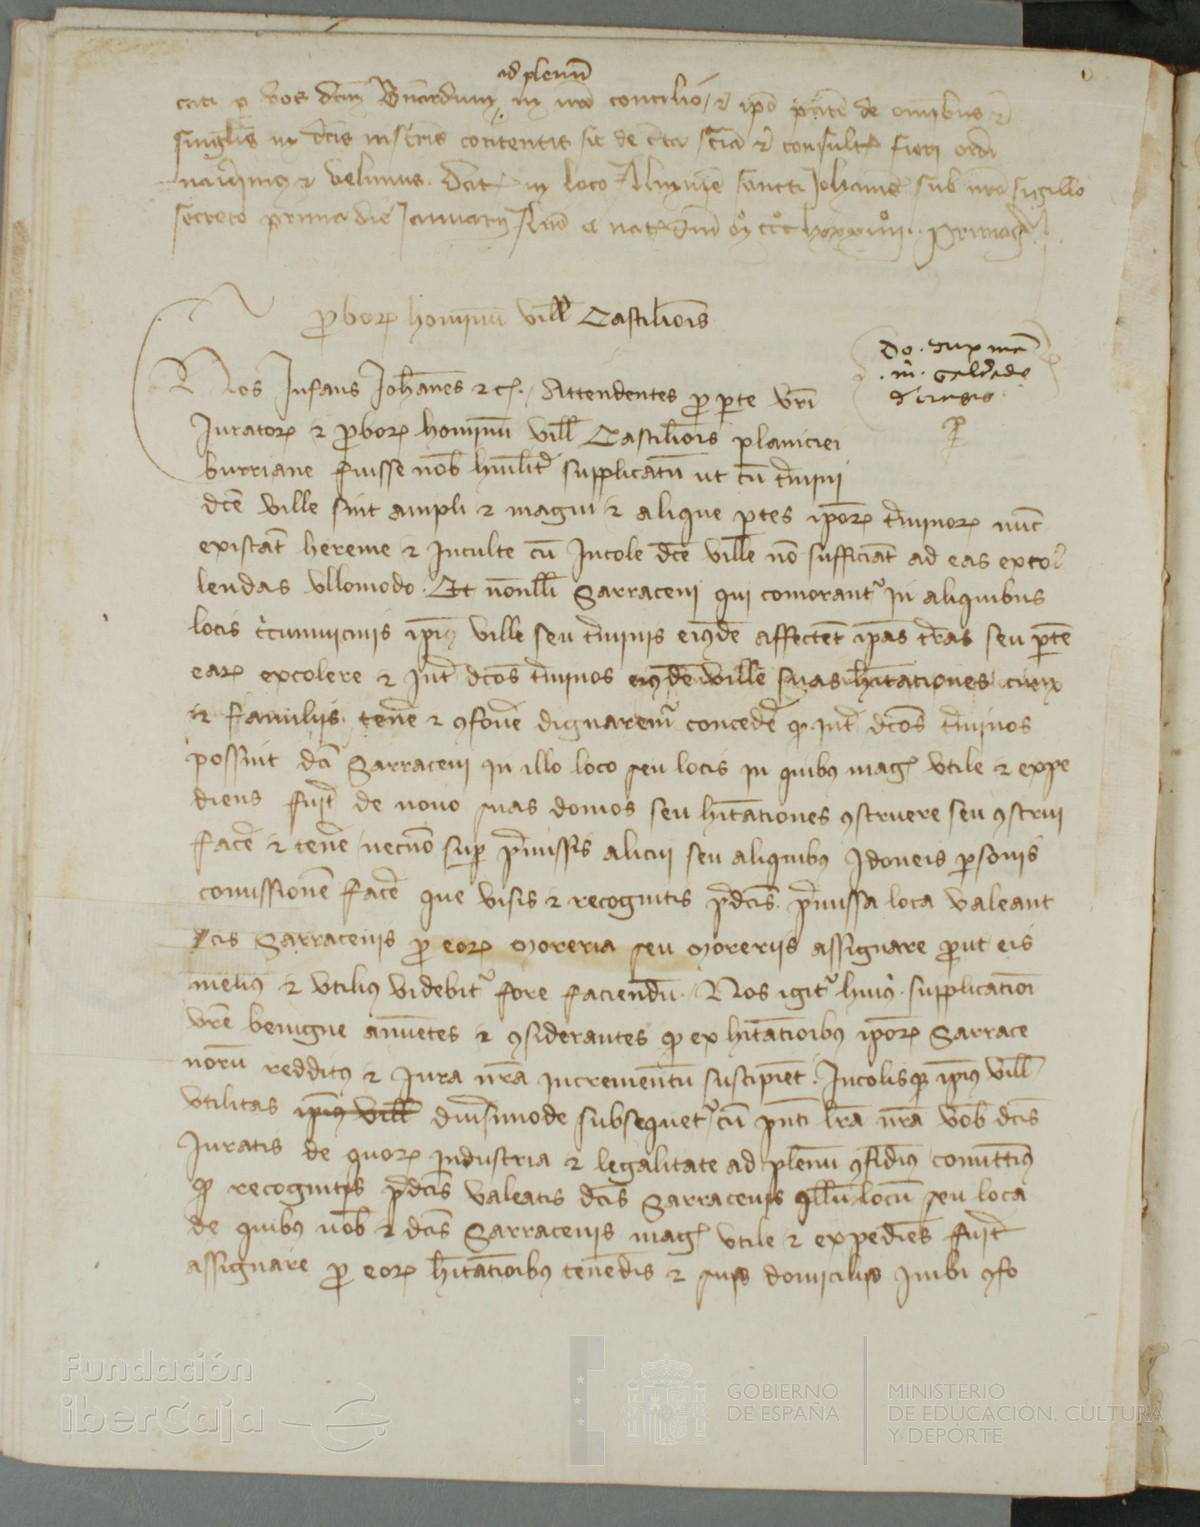 ad plenu
cati p vos dcm Bnardum in nro concilio / et ipo de omibus et
singlis in dcis insertis contentis sic de certa scia et consulte fieri ordi
navimus et velimus. Dat in loco sancti Johanis sub nro sigillo
secreto prima die Januarii Anno a nat dni Mo CCCo
pborum hominum ville Castilionis
Nos Infans Johanes etc. Attendentes p parte vri
Juratorum et pborum hominum vill Castilionis planiciei
burriane fuisse nob humilit supplicatu ut cu tmini
dce ville sint ampli et magni et alique ptes iporum tminorum nuc
existat hereme et Inculte cu Incole dce ville no sufficiat ad eas exco
lendas ullomodo. Et nonulli Sarraceni qui comorant in aliquibus
locis circumvicinis ipius ville seu tminis eiusde affectet ipas tras seu pte
earum excolere et Int dcos tminos eiusde ville suas hitationes cu ux
et familiis tene et confove dignarem concede q int dcos tminos
possint dci Sarraceni in illo loco seu locis in quibus mag utile et expe
diens fuit de novo suas domos seu hitationes construere seu construi
face et tene necno sup pmissis alicui seu aliquibus Idoneis psonis
comissione face que visis et recognitis pdcis pmissa loca valeant
dcis Sarracenis p eorum Moreria seu Moreriis assignare put eis
melius et utilius videbit fore faciendu. Nos igit huius supplicatioi
vre benigne anuetes et considerantes q ex hitatioibus iporum Sarrace
noru redditus et Jura nra incrementu suscipiet. Incolisq ipius vill
utilitas ipius vill divsimode subsequet cu pnti lra nra vob dcis
Juratis de quorum industria et legalitate ad plenu confidimus comittimus
q recognitis pdcis valeatis dcis Sarracenis locu seu loca
de quibus vob et dcis Sarracenis mag utile et expedies fuit
assignare p eorum hitatioibus tenedis et suis domiciliis inibi confo
Fundación
iberCaja
GOBIERNO
DE ESPAÑA
MINISTERIO
DE EDUCACIÓN, CULTURA
Y DEPORTE